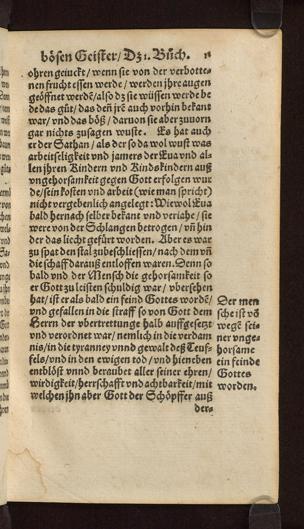 bösen Geister / Dz 1. Bůch.
ohren geiuckt / wenn sie von der verbotte-
nen frucht essen werde / werden jhre augen
geöffnet werdē / also dz sie wüssen werde be
de das gůt / das deñ jrē auch vorhin bekant
war / vnd das böß / daruon sie aber zuuorn
gar nichts zusagen wuste. Es hat auch
er der Sathan / als der so da wol wust was
arbeitseligkeit vnd jamers der Eua vnd al-
len jhren Kindern vnd Kindskindern auß
vngehorsamkeit gegen Gott erfolgen wur
de / sein kosten vnd arbeit (wie man spricht)
nicht vergebenlich angelegt: Wiewol Eua
bald hernach selber bekant vnd veriahe / sie
were von der Schlangen betrogen / vñ hin
der das liecht gefürt worden. Aber es war
zu spat den stal zubeschliessen / nach dem vñ
die schaff darauß entloffen waren. Denn so
bald vnd der Mensch die gehorsamkeit so
er Gott zu leisten schuldig war / vbersehen
hat / ist er als bald ein feind Gottes wordē /
vnd gefallen in die straff so von Gott dem
Herrn der vbertrettunge halb auffgesetzt
vnd verordnet war / nemlich in die verdam
nis / in die tyranney vnnd gewalt deß Teuf-
fels / vnd in den ewigen tod / vnd hieneben
entblöst vnnd beraubet aller seiner ehren /
wirdigkeit / herrschafft vnd achtbarkeit / mit
welchen jhn aber Gott der Schöpffer auß
der-
Der men
sche ist vō
wegē sei-
ner vnge-
horsame
ein feinde
Gottes
worden.